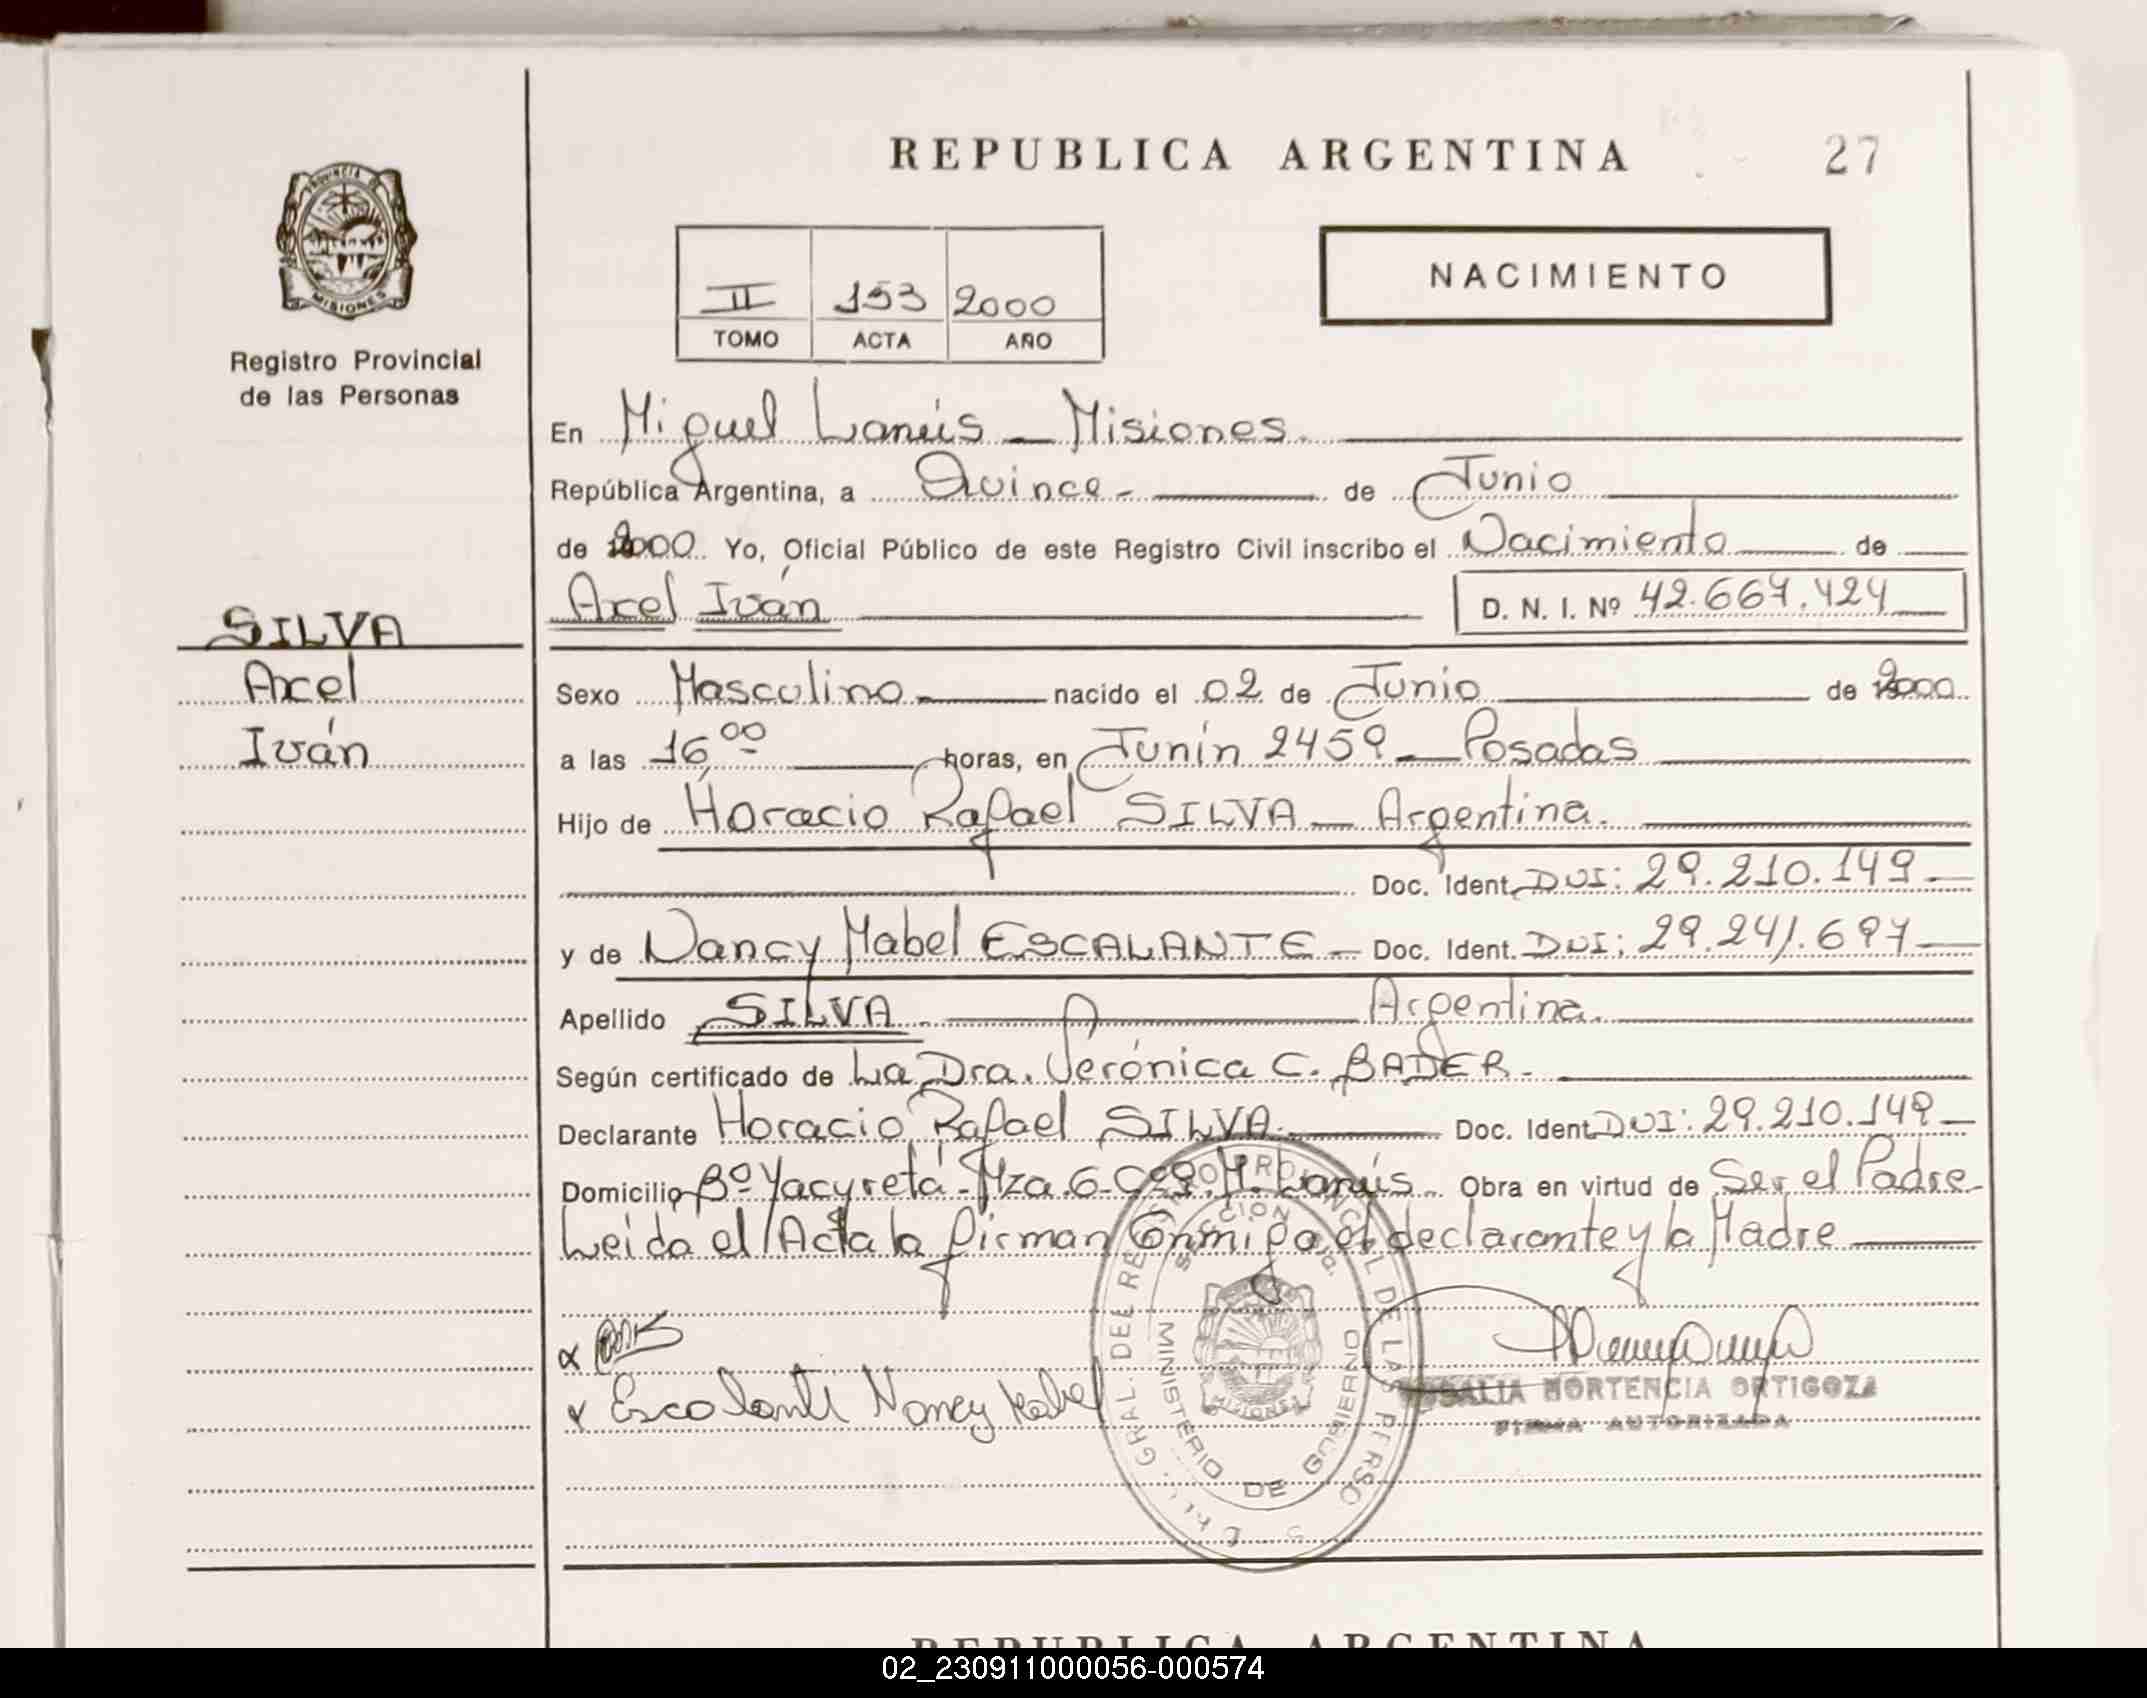 REPUBLICA ARGENTINA
27
PROVINCIA DE
MISIONES
Registro Provincial
de las Personas
II 153 2000
TOMO ACTA AÑO
NACIMIENTO
En Miguel Lanús - Misiones.
República Argentina, a Quince - de Junio
de 2000. Yo, Oficial Público de este Registro Civil inscribo el Nacimiento de
Axel Iván D. N. I. Nº 42.667.424
SILVA
Axel
Iván
Sexo Masculino nacido el 02 de Junio de 2000
a las 16,00 horas, en Junín 2459 - Posadas
Hijo de Horacio Rafael SILVA - Argentina.
Doc. Ident. DUI: 29.210.149
y de Nancy Mabel ESCALANTE - Doc. Ident. DUI: 29.241.697
Apellido SILVA Argentina.
Según certificado de La Dra. Verónica C. BADER.
Declarante Horacio Rafael SILVA. Doc. Ident. DUI: 29.210.149
Domicilio Bº Yacyretá - Mza. 6 - M. Lanús. Obra en virtud de Ser el Padre
Leida el Acta la firman Conmigo el declarante y la Madre
Escalante Nancy Mabel
GRAL. DEL REGISTRO PROVINCIAL DE LAS PERSO
MINISTERIO DE GOBIERNO
MISIONES
ROSALIA HORTENCIA ORTIGOZA
FIRMA AUTORIZADA
REPUBLICA ARGENTINA
02_230911000056-000574